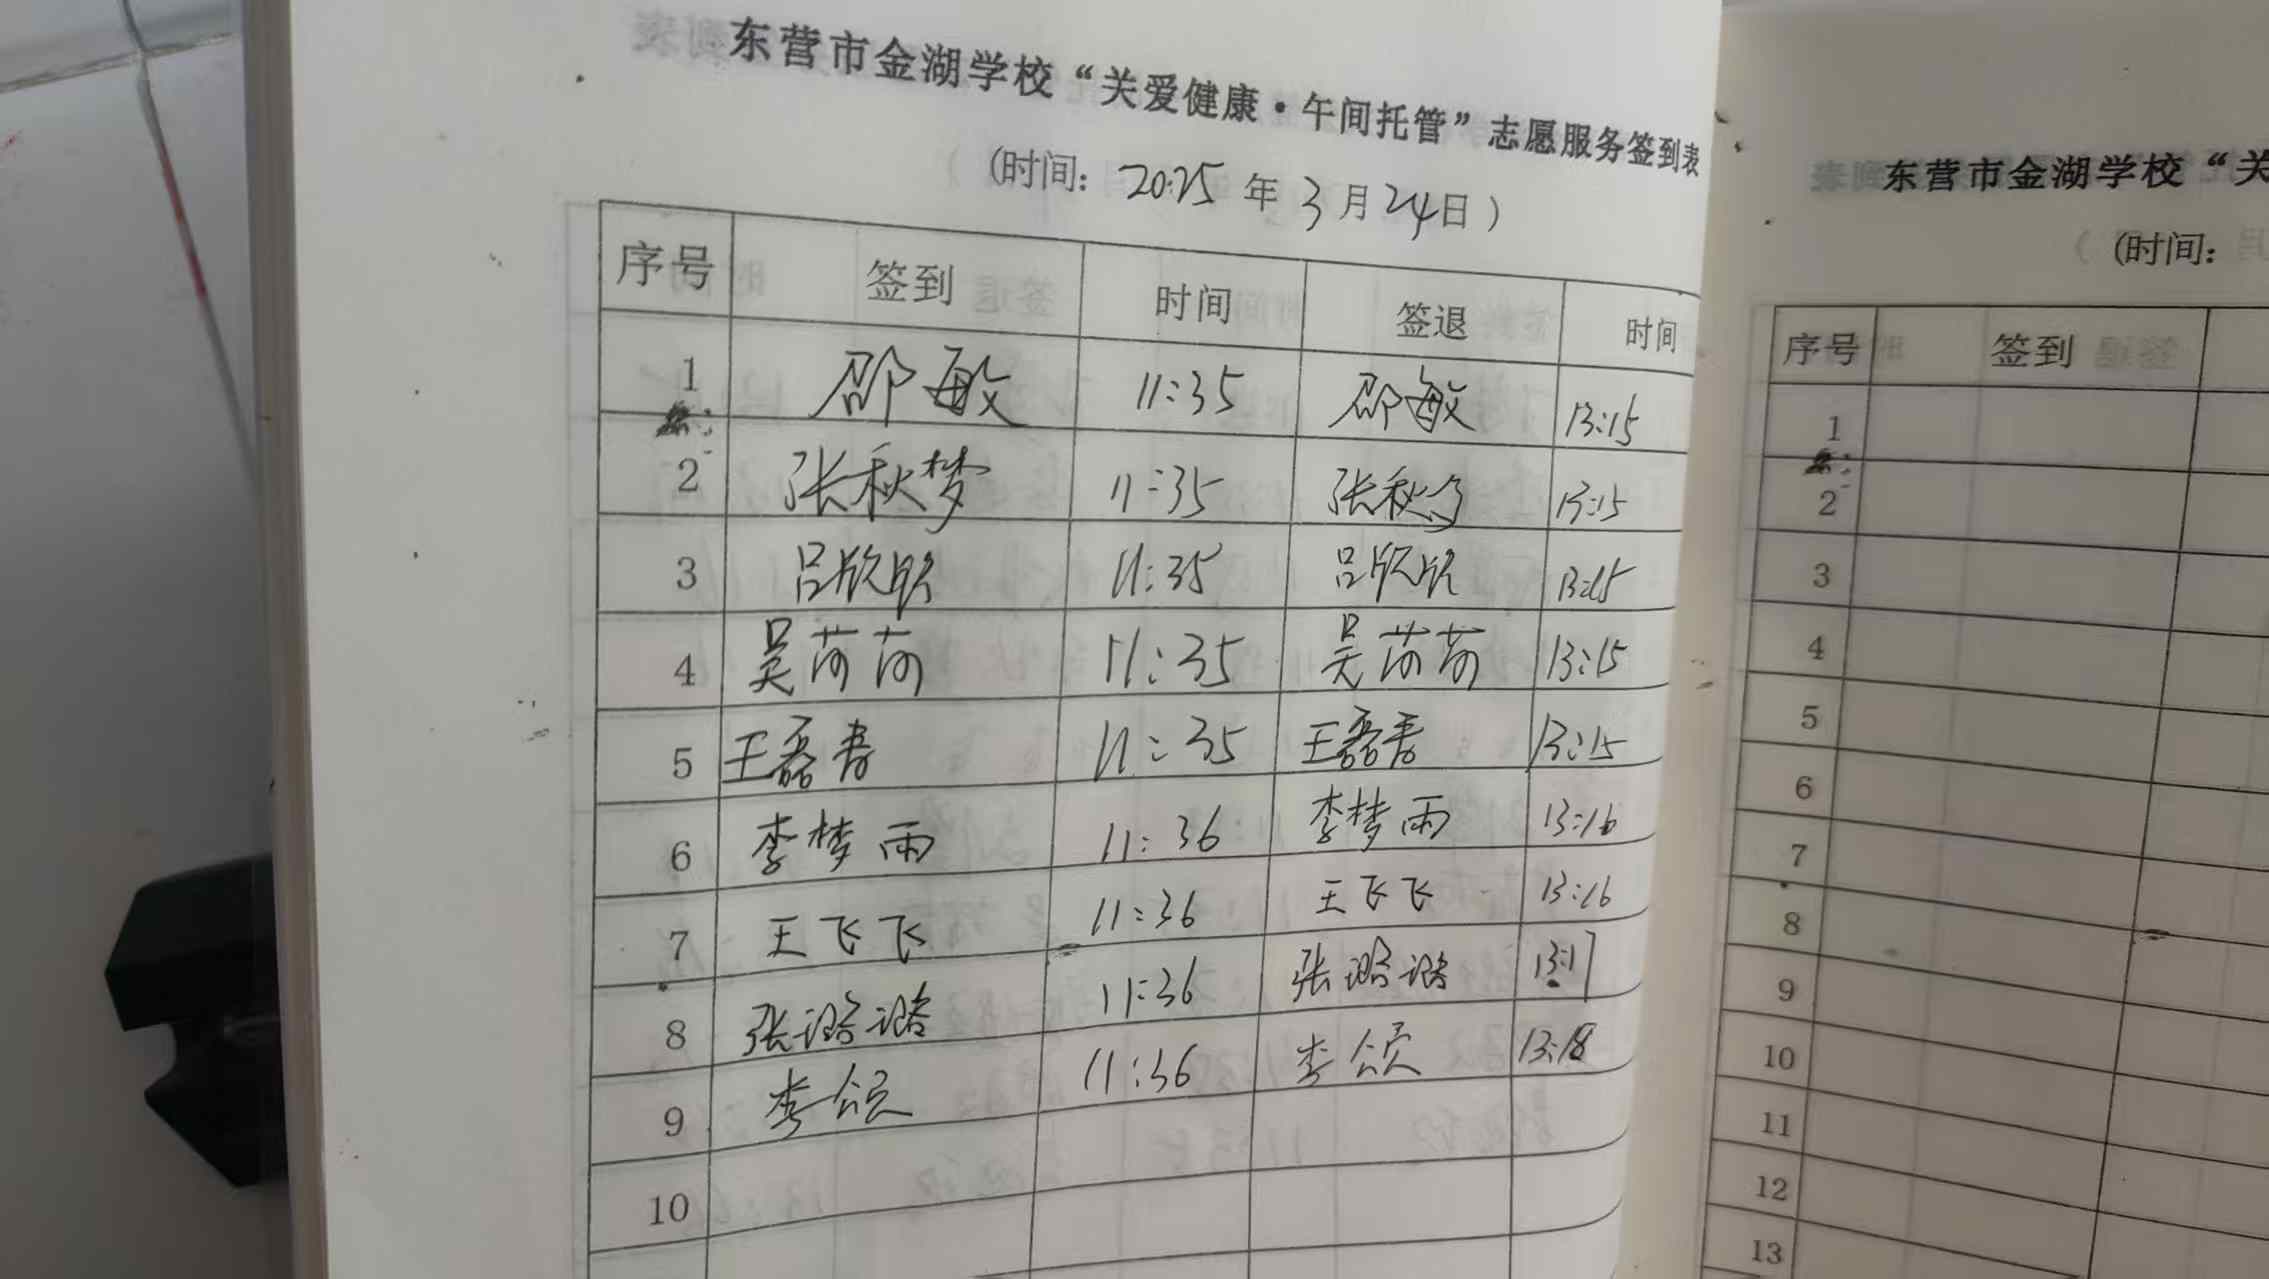 东营市金湖学校“关爱健康·午间托管”志愿服务签到表
(时间: 2025 年 3 月 24 日)
序号 签到 时间 签退 时间
1 邵敏 11:35 邵敏 13:15
2 张秋梦 11:35 张秋 13:15
3 吕欣欣 11:35 吕欣欣 13:15
4 吴苛苛 11:35 吴苛苛 13:15
5 王磊春 11:35 王磊春 13:15
6 李梦雨 11:36 李梦雨 13:16
7 王飞飞 11:36 王飞飞 13:16
8 张潞潞 11:36 张潞潞 13:17
9 李颂 11:36 李颂 13:18
10
东营市金湖学校“关
(时间:
序号 签到
1
2
3
4
5
6
7
8
9
10
11
12
13